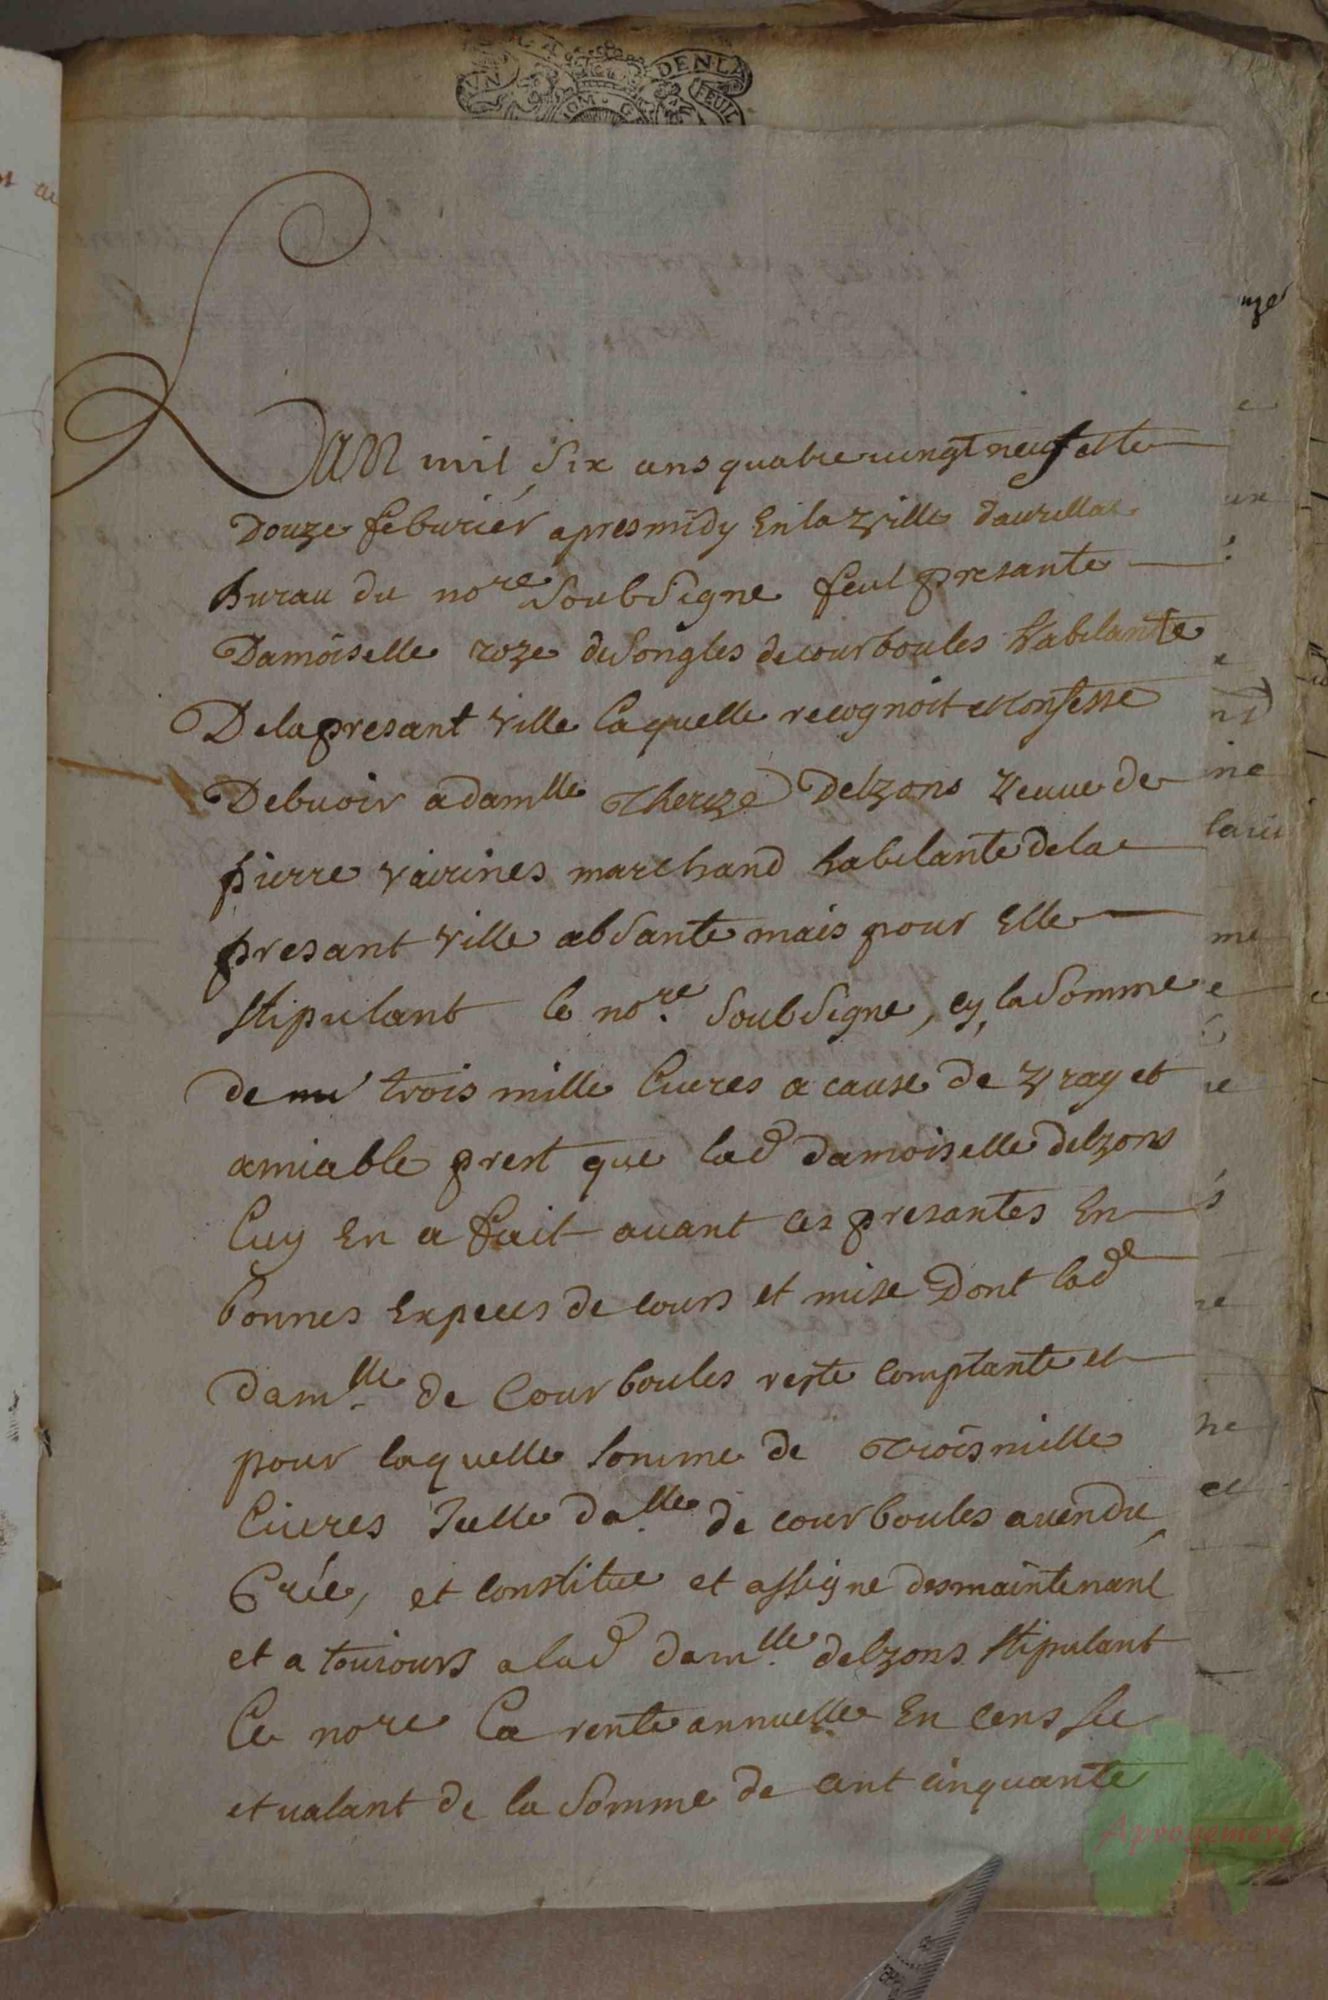 DENLA
FEUIL
Lan mil six ans quatre vingt neuf et le
Douze feburier apres midy En la ville daurillac
Burau du nore soubsigne feut presante
Damoiselle roze desongles de courboules habilante
De la presant ville laquelle recognoit et confesse
Debuoir a damlle Thereze Delzons veuue de
pierre vairines marchand habilante de la
presant ville absante mais pour Elle
stipulant le nore soubsigne, cy, la somme
de trois mille liures a cause de vray et
amiable prest que lad damoiselle delzons
luy En a fait auant ces presantes En
bonnes Expeces de cours et mise Dont lade
damlle de Courboules reste comptante et
pour laquelle somme de Trois mille
liures Icelle dalle de courboules a uendu
Crée, et constitue et assigne des maintenant
et a touiours a lad damlle delzons stipulant
le nore la rente annuelle En cens
et ualant de la somme de cent cinquante
Aprogemere